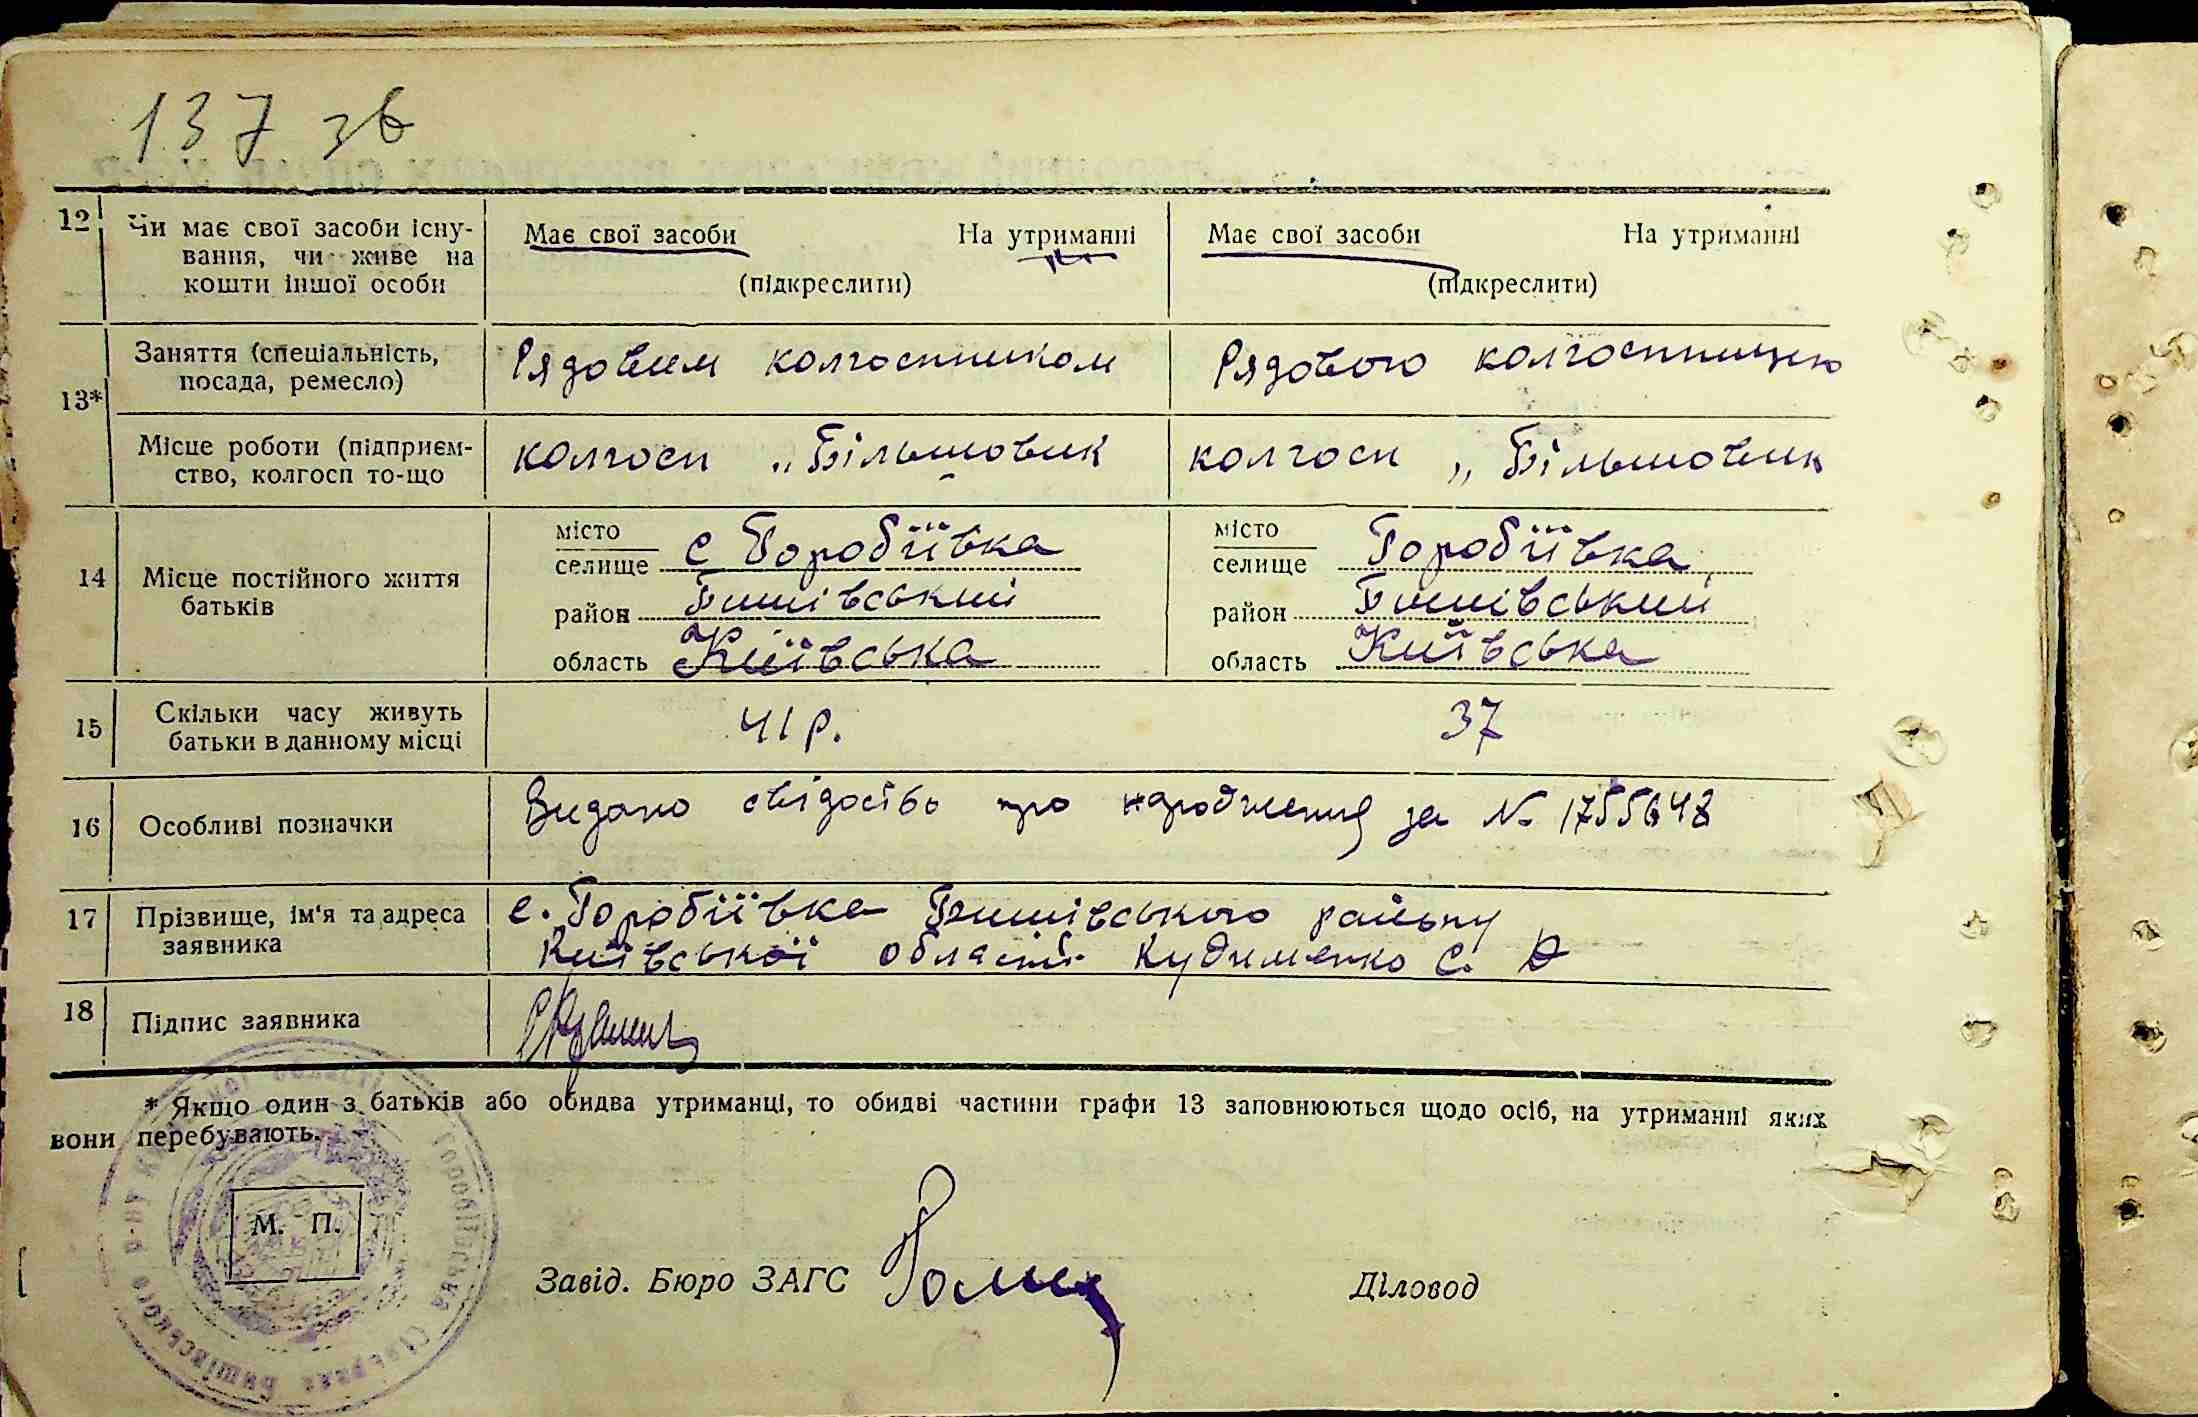 137 зв
12 Чи має свої засоби існу- Має свої засоби На утриманні Має свої засоби На утриманні
вання, чи живе на
кошти іншої особи (підкреслити) (підкреслити)
13*
Заняття (спеціальність, Рядовим колгоспником Рядовою колгоспницею
посада, ремесло)
Місце роботи (підприєм- колгосп „Більшовик колгосп „Більшовик
ство, колгосп то-що
14 Місце постійного життя
батьків
місто с Горобіївка місто Горобіївка,
селище селище
район Бишівський район Бишівський
область Київська область Київська
15 Скільки часу живуть 41 р. 37
батьки в данному місці
16 Особливі позначки Видано свідоство про народження за № 1755648
17 Прізвище, ім'я та адреса с. Горобіївка Бишівського району
заявника Київської області Кудименко С.
18 Підпис заявника
* Якщо один з батьків або обидва утриманці, то обидві частини графи 13 заповнюються щодо осіб, на утриманні яких
вони перебувають.
М. П.
Завід. Бюро ЗАГС Діловод